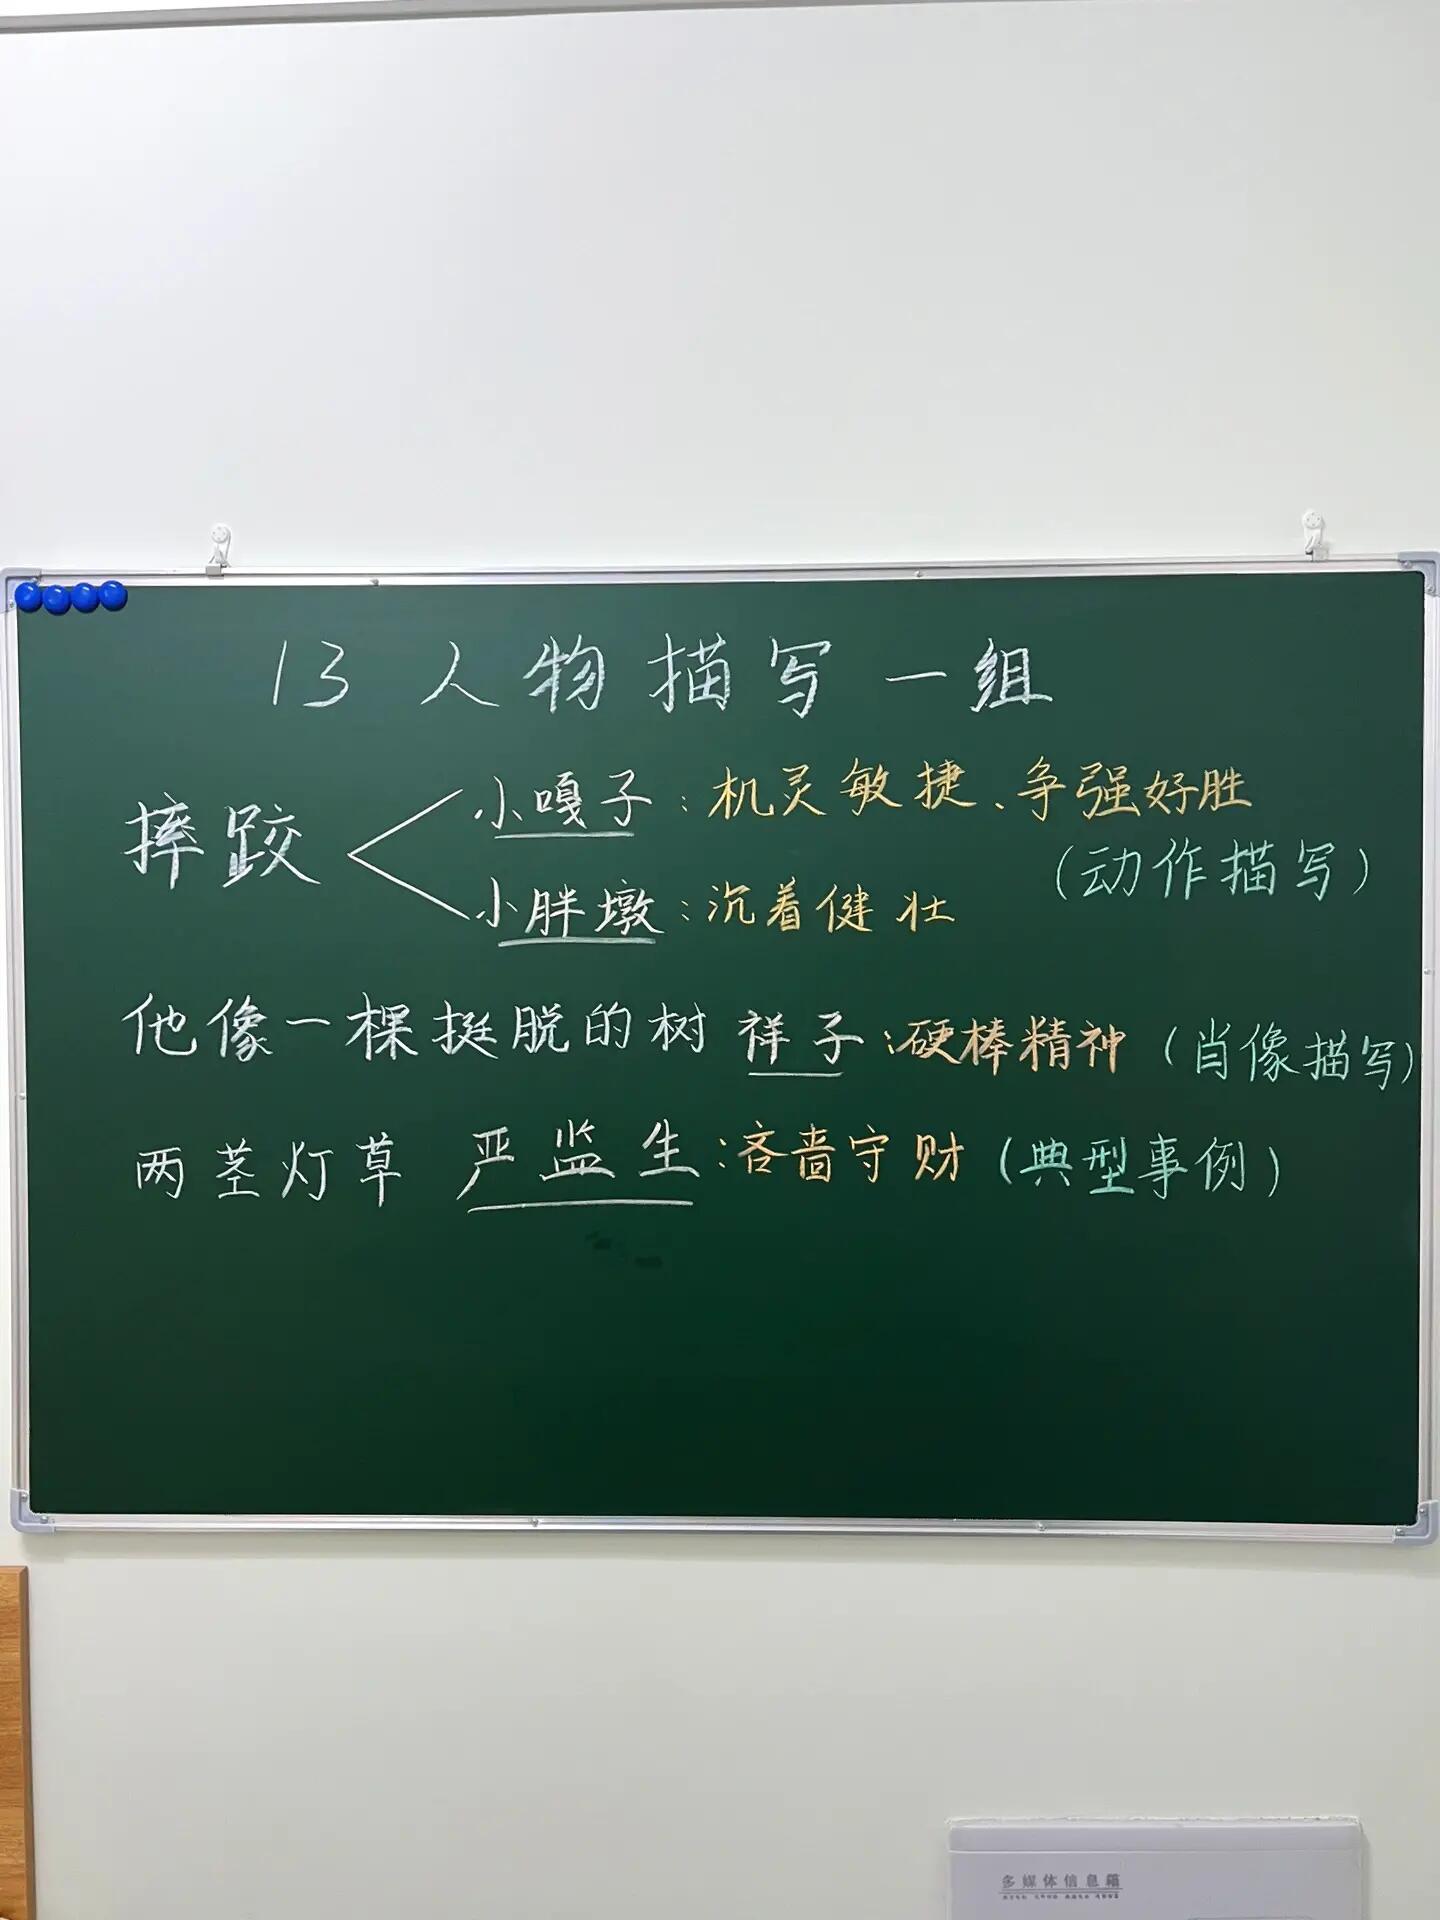 13 人物描写一组
摔跤
小嘎子：机灵敏捷、争强好胜
（动作描写）
小胖墩：沉着健壮
他像一棵挺脱的树 祥子：硬棒精神（肖像描写）
两茎灯草 严监生：吝啬守财（典型事例）
多媒体信息箱